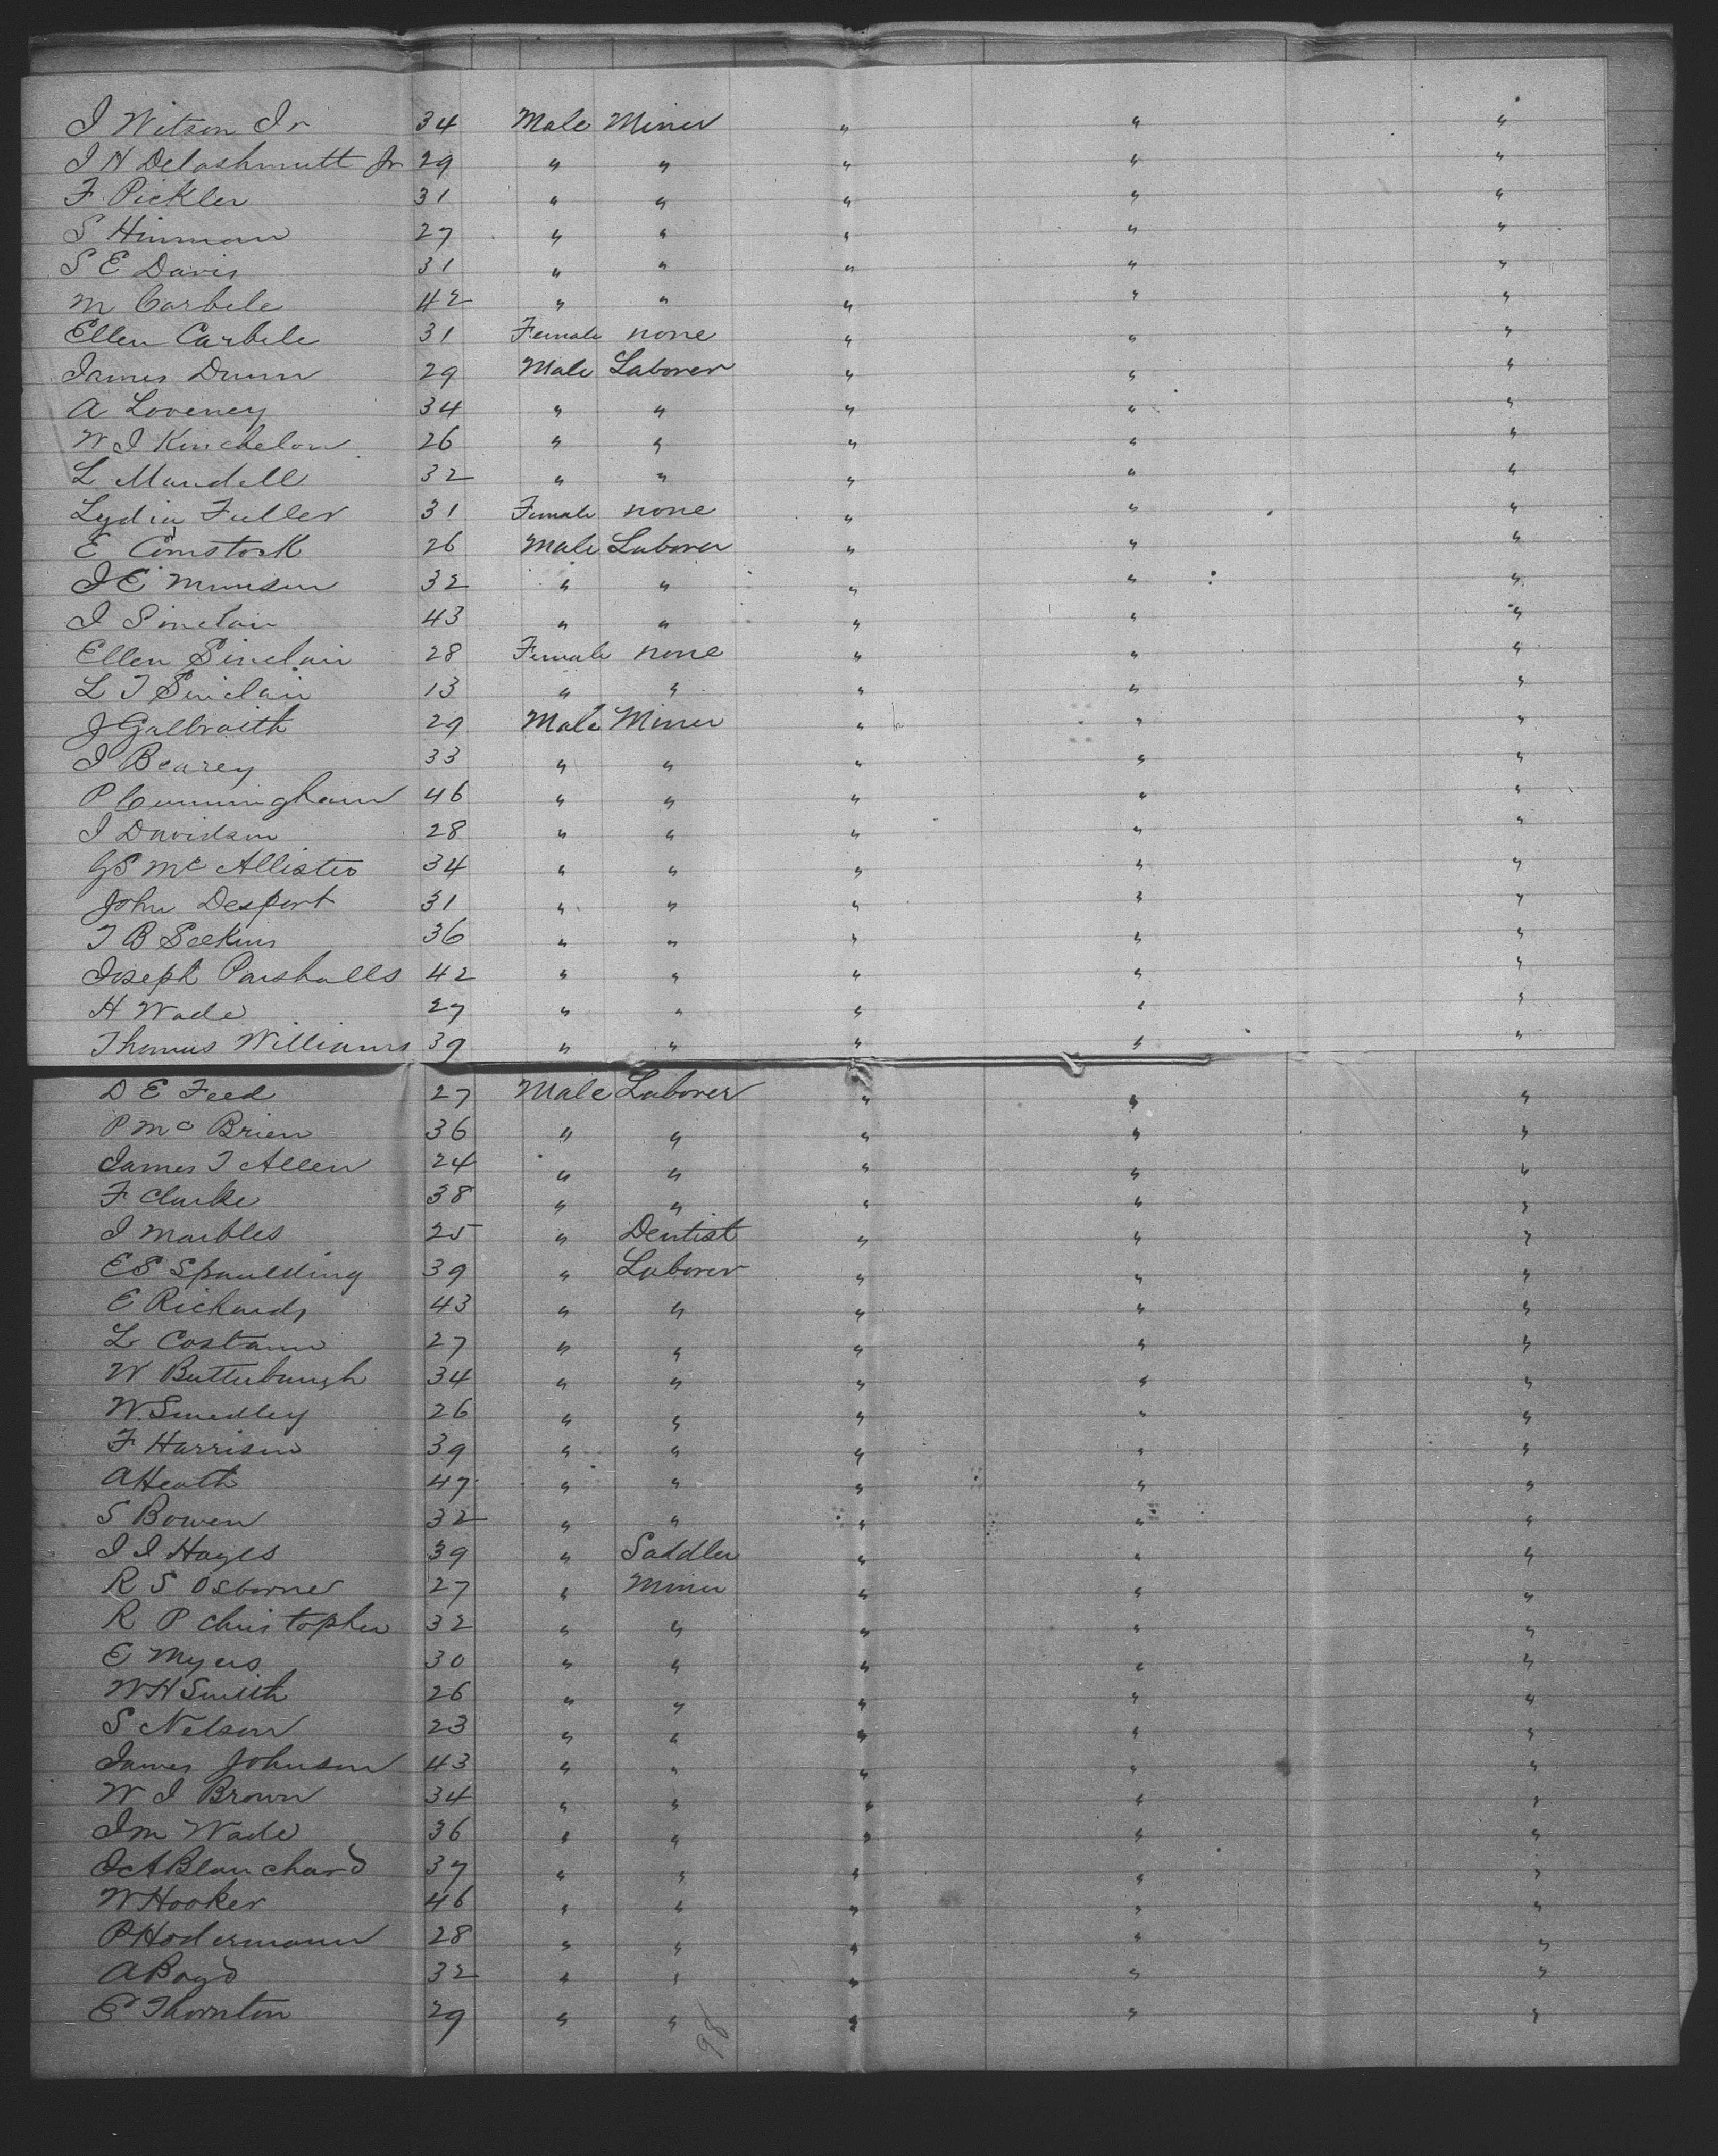 J Witson Jr 34 Male Miner " " "
J H Delashmutt Jr 29 " " " " "
F. Pickler 31 " " " " "
S Hinman 27 " " " " "
S E Davis 31 " " " " "
M Carbele 42 " " " " "
Ellen Carbele 31 Female none " " "
James Dunn 29 Male Laborer " " "
A Loveney 34 " " " " "
W J Kinchelow 26 " " " " "
L Mandell 32 " " " " "
Lydia Fuller 31 Female none " " "
E Comstock 26 Male Laborer " " "
J E Munson 32 " " " " "
J Sinclair 43 " " " " "
Ellen Sinclair 28 Female none " " "
L J Sinclair 13 " " " " "
J Galbraith 29 Male Miner " " "
J Bearey 33 " " " " "
P Cunningham 46 " " " " "
J Davidson 28 " " " " "
G S McAllister 34 " " " " "
John Desport 31 " " " " "
T B Seekins 36 " " " " "
Joseph Parshalls 42 " " " " "
H Wade 27 " " " " "
Thomas Williams 39 " " " " "
D E Feed 27 Male Laborer " " "
P McBrien 36 " " " " "
James T Allen 24 " " " " "
F Clarke 38 " " " " "
J Marbles 25 " Dentist " " "
E S Spaulding 39 " Laborer " " "
E Richards 43 " " " " "
L Costann 27 " " " " "
W Butterbaugh 34 " " " " "
W. Smedley 26 " " " " "
F Harrison 39 " " " " "
A Heath 47 " " " " "
S Bowen 32 " " " " "
J J Hayes 39 " Saddler " " "
R S Osborne 27 " Miner " " "
R P Christopher 32 " " " " "
E Myers 30 " " " " "
W H Smith 26 " " " " "
S Nelson 23 " " " " "
James Johnson 43 " " " " "
W J Brown 34 " " " " "
J M Wade 36 " " " " "
J A Blanchard 37 " " " " "
W Hooker 46 " " " " "
P Hodermann 28 " " " " "
A Boyd 32 " " " " "
E Thornton 29 " " " " "
98